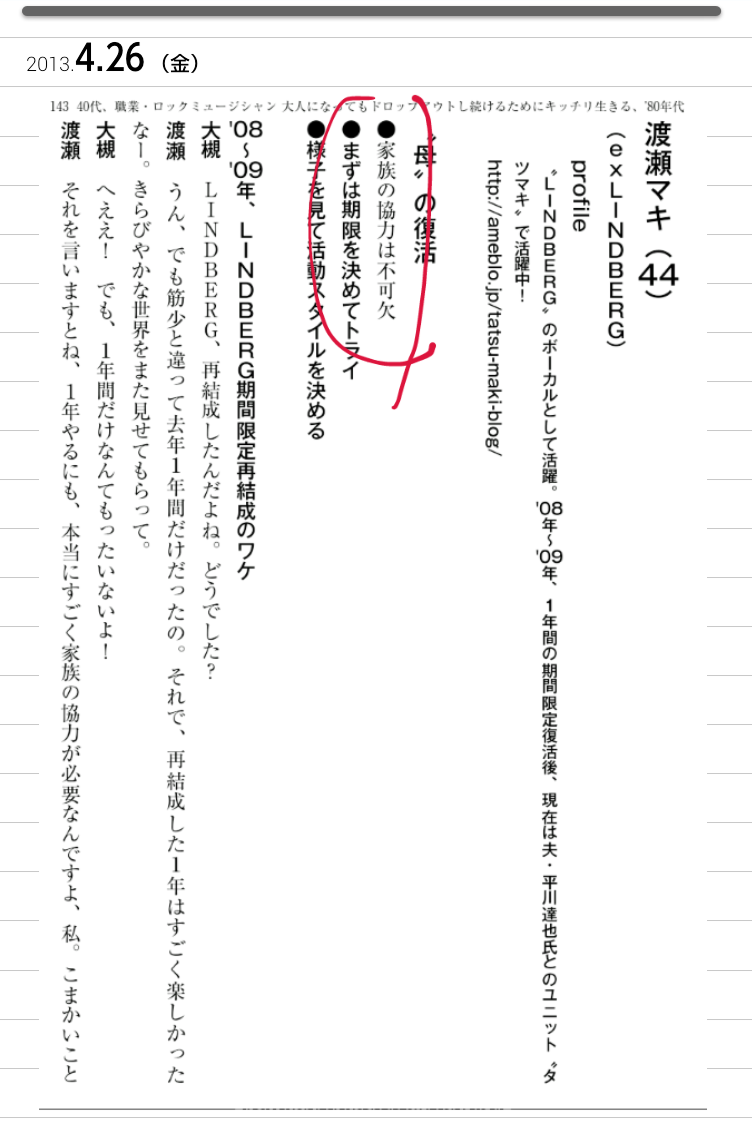 2013.4.26（金）
143 40代、職業・ロックミュージシャン 大人になってもドロップアウトし続けるためにキッチリ生きる、'80年代
渡瀬マキ（44）
（exLINDBERG）
profile
〝LINDBERG〟のボーカルとして活躍。'08年〜'09年、1年間の期間限定復活後、現在は夫・平川達也氏とのユニット〝タ
ツマキ〟で活躍中！
http://ameblo.jp/tatsu-maki-blog/
〝母〟の復活
●家族の協力は不可欠
●まずは期限を決めてトライ
●様子を見て活動スタイルを決める
'08〜'09年、LINDBERG期間限定再結成のワケ
大槻　LINDBERG、再結成したんだよね。どうでした？
渡瀬　うん、でも筋少と違って去年1年間だけだったの。それで、再結成した1年はすごく楽しかった
なー。きらびやかな世界をまた見せてもらって。
大槻　へええ！　でも、1年間だけなんてもったいないよ！
渡瀬　それを言いますとね、1年やるにも、本当にすごく家族の協力が必要なんですよ、私。こまかいこと